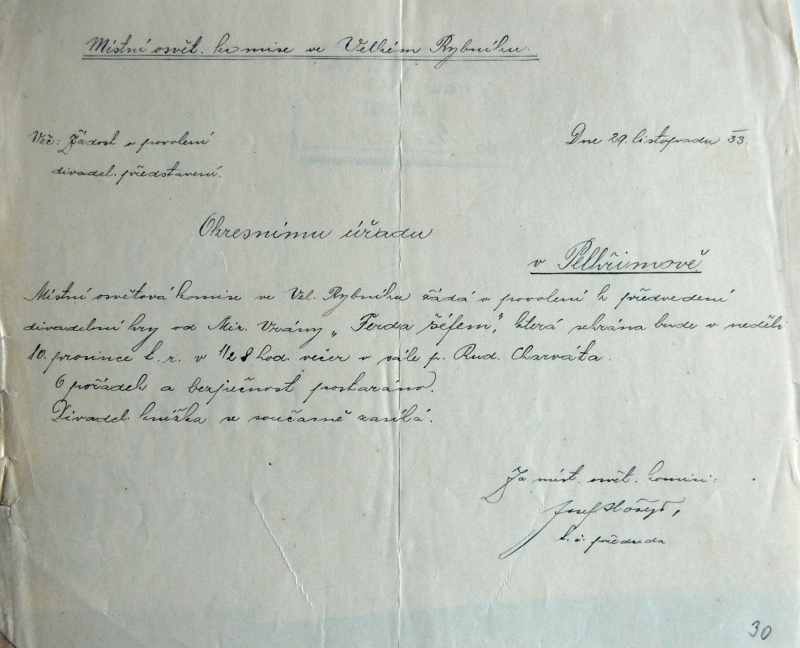 Místní osvět. komise ve Velkém Rybníku.
Věc: Žádost o povolení
divadel. představení.
Dne 29. listopadu 33.
Okresnímu úřadu
v Pelhřimově
Místní osvětová komise ve Vel. Rybníku žádá o povolení k předvedení
divadelní hry od Mir. Vrány „Ferda šéfem", která sehrána bude v neděli
10. prosince t. r. v 1/2 8 hod. večer v sále p. Rud. Charváta.
O pořádek a bezpečnost postaráno.
Divadel. knížka se současně zasílá.
Za míst. osvět. komisi:
Josef
t. č. předseda
30